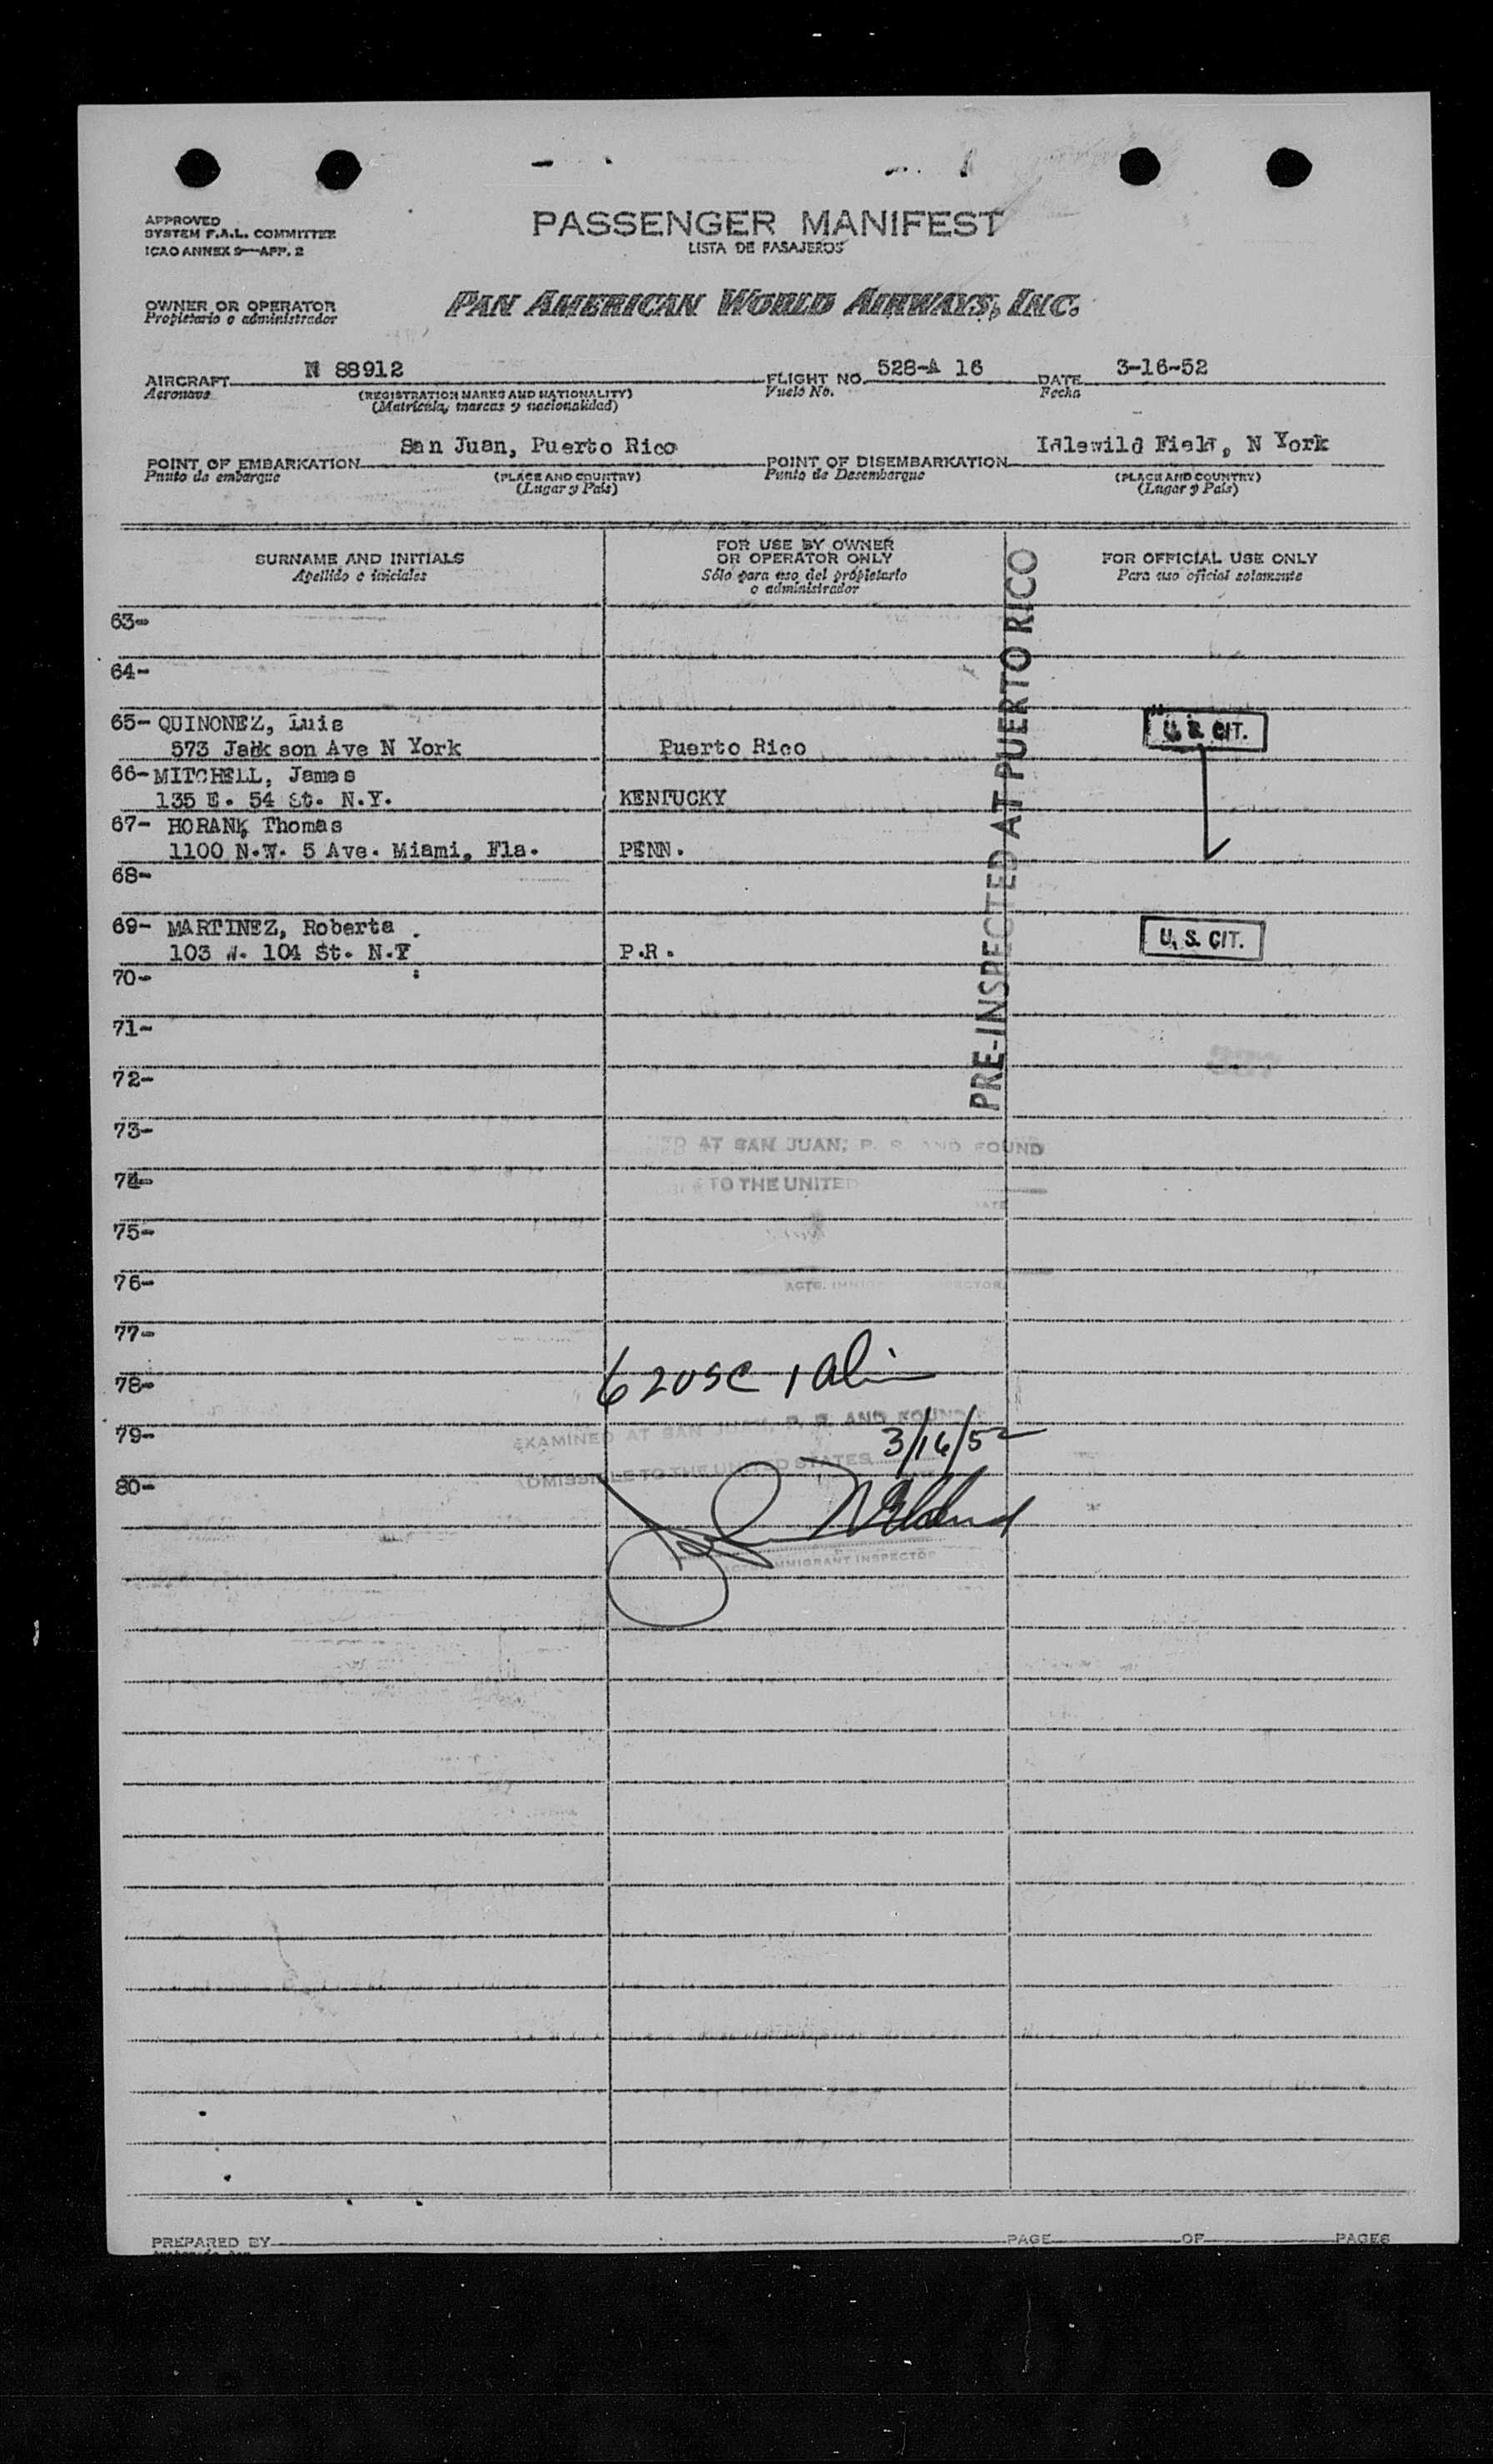 APPROVED
SYSTEM F.A.L. COMMITTEE
ICAO ANNEX 9—APP. 2
PASSENGER MANIFEST
LISTA DE PASAJEROS
OWNER OR OPERATOR
Propietario o administrador
PAN AMERICAN WORLD AIRWAYS, INC.
AIRCRAFT N 88912 FLIGHT NO. 528-A 16 DATE 3-16-52
Aeronave (REGISTRATION MARKS AND NATIONALITY) Vuelo No. Fecha
(Matrícula, marcas y nacionalidad)
POINT OF EMBARKATION San Juan, Puerto Rico POINT OF DISEMBARKATION Idlewild Field, N York
Punto de embarque (PLACE AND COUNTRY) Punto de Desembarque (PLACE AND COUNTRY)
(Lugar y País) (Lugar y País)
SURNAME AND INITIALS FOR USE BY OWNER OR OPERATOR ONLY FOR OFFICIAL USE ONLY
Apellido e iniciales Sólo para uso del propietario o administrador Para uso oficial solamente
PRE-INSPECTED AT PUERTO RICO
63-
64-
65- QUINONEZ, Luis U. S. CIT.
573 Jackson Ave N York Puerto Rico
66- MITCHELL, James
135 E. 54 St. N.Y. KENTUCKY
67- HORANK, Thomas
1100 N.W. 5 Ave. Miami, Fla. PENN.
68-
69- MARTINEZ, Roberta U. S. CIT.
103 W. 104 St. N.Y. P.R.
70-
71-
72-
73-
AT SAN JUAN, P. R. AND FOUND
74-
TO THE UNITED
75-
76-
77-
78-
62 USC 1 ali
79-
EXAMINED AT SAN JUAN, P. R. AND FOUND
3/16/52
80-
ADMISSIBLE TO THE UNITED STATES
IMMIGRANT INSPECTOR
PREPARED BY PAGE OF PAGES